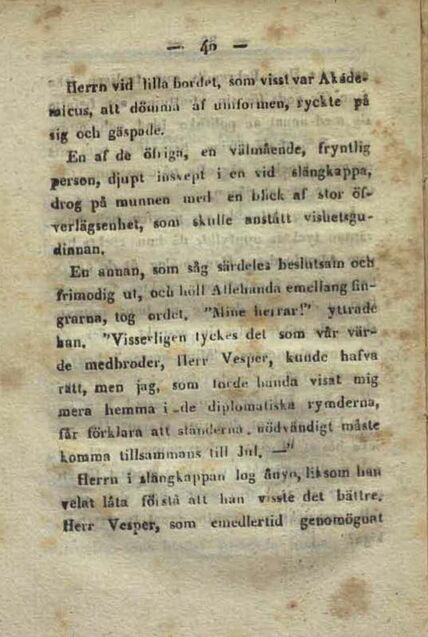 — 40 —
Herrn vid lilla bordet, som visst var Akade-
micus, att dömma af uniformen, ryckte på
sig och gäspade.
En af de öfriga, en välmående, fryntlig
person, djupt insvept i en vid slängkappa,
drog på munnen med en blick af stor öf-
verlägsenhet, som skulle anstått vishetsgu-
dinnan.
En annan, som såg särdeles beslutsam och
frimodig ut, och höll Allehanda emellang fin-
grarna, tog ordet. "Mine herrar!" yttrade
han. "Visserligen tyckes det som vår vär-
de medbroder, Herr Vesper, kunde hafva
rätt, men jag, som torde hända visat mig
mera hemma i de diplomatiska rymderna,
får förklara att ständerna nödvändigt måste
komma tillsammans till Jul. —"
Herrn i slängkappan log ånyo, liksom han
velat låta förstå att han visste det bättre.
Herr Vesper, som emedlertid genomögnat